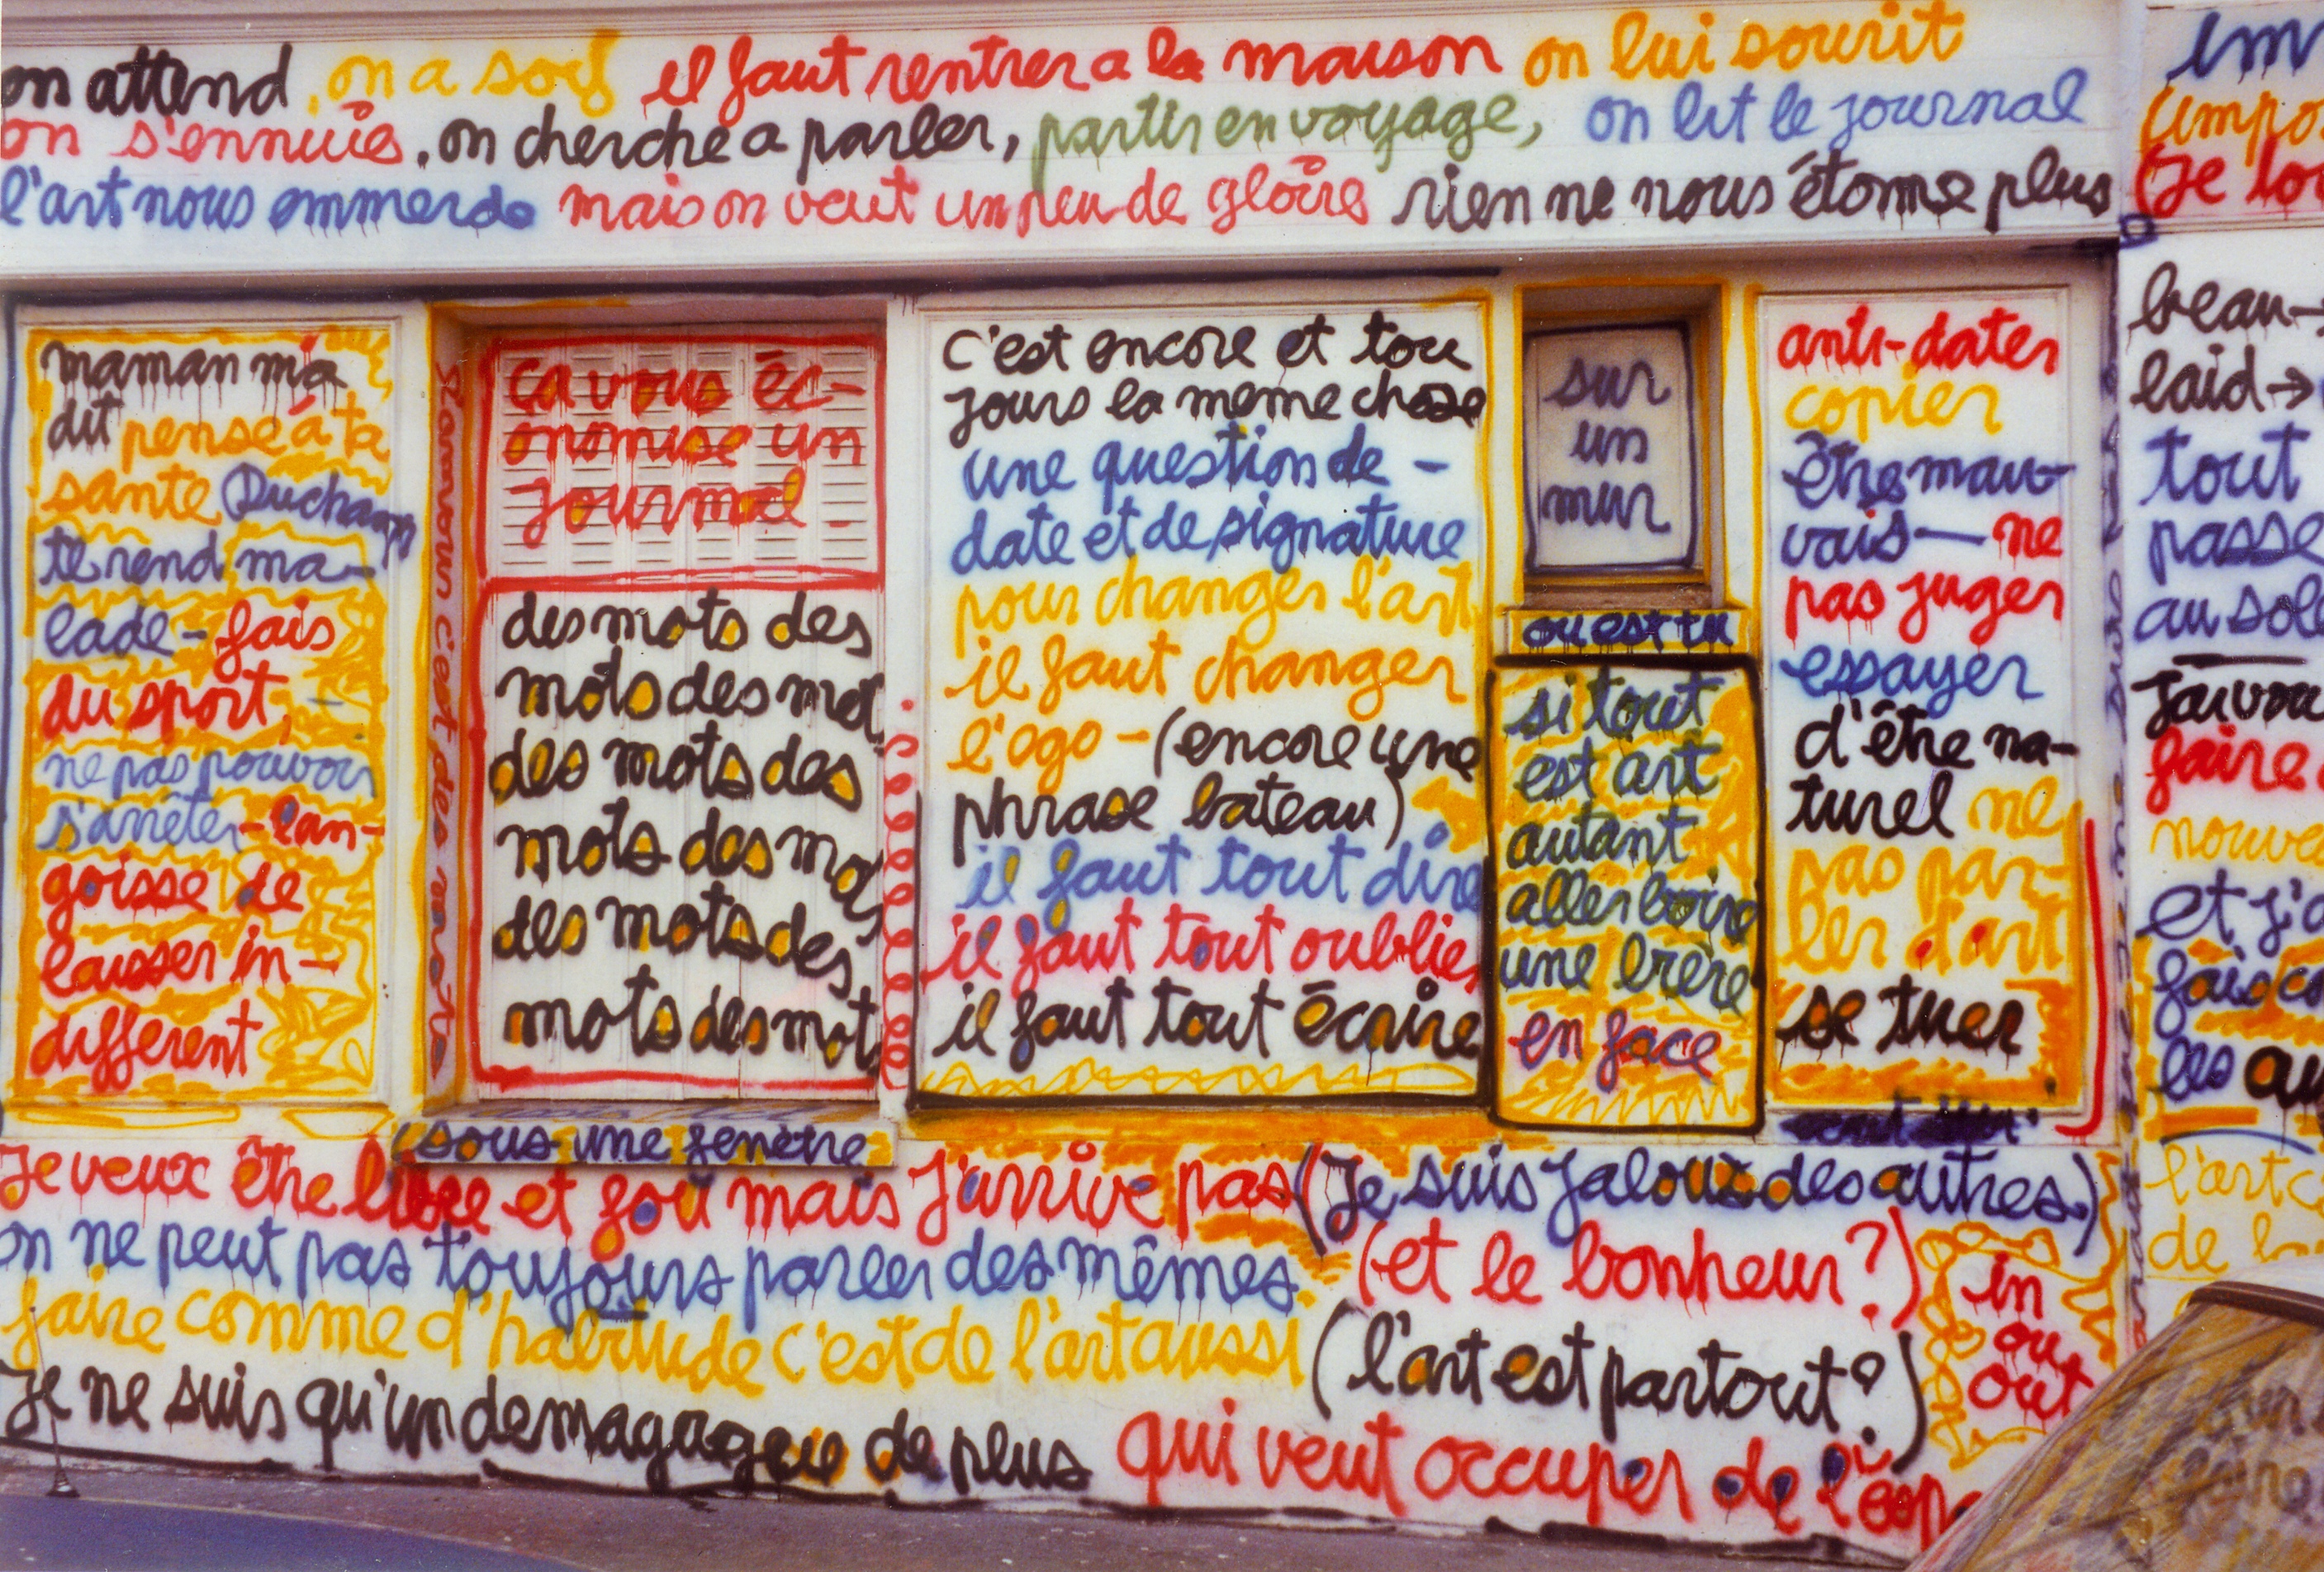 on attend, on a soif il faut rentrer a la maison on lui sourit
on s'ennuie, on cherche a parler, partir en voyage, on lit le journal
l'art nous emmerde mais on veut un peu de gloire rien ne nous étonne plus
maman m'a
dit pense à ta
sante Duchamp
te rend ma-
lade - fais
du sport,
ne pas pouvoir
s'arrêter - l'an-
goisse de
laisser in-
différent
ça vous éc-
onomise un
journal
des mots des
mots des mot
des mots des
mots des mots
des mots des
mots des mots
sous une fenêtre
c'est encore et tou
jours la meme chose
une question de -
date et de signature
pour changer l'art
il faut changer
l'ego - (encore une
phrase bateau)
il faut tout dire
il faut tout oublier
il faut tout écrire
sur
un
mur
ou est tu
si tout
est art
autant
aller boire
une bière
en face
anti-dater
copier
être mau-
vais - ne
pas juger
essayer
d'être na-
turel ne
pas par-
ler d'art
se tuer
Je veux être libre et fou mais j'arrive pas (Je suis jaloux des autres.)
on ne peut pas toujours parler des mêmes (et le bonheur?)
faire comme d'habitude c'est de l'art aussi (l'art est partout?)
in
ou
out
Je ne suis qu'un demagogue de plus qui veut occuper de l'esp
beau-
laid →
tout
passe
au sol
faire
et j'a
fais
les
l'art
de